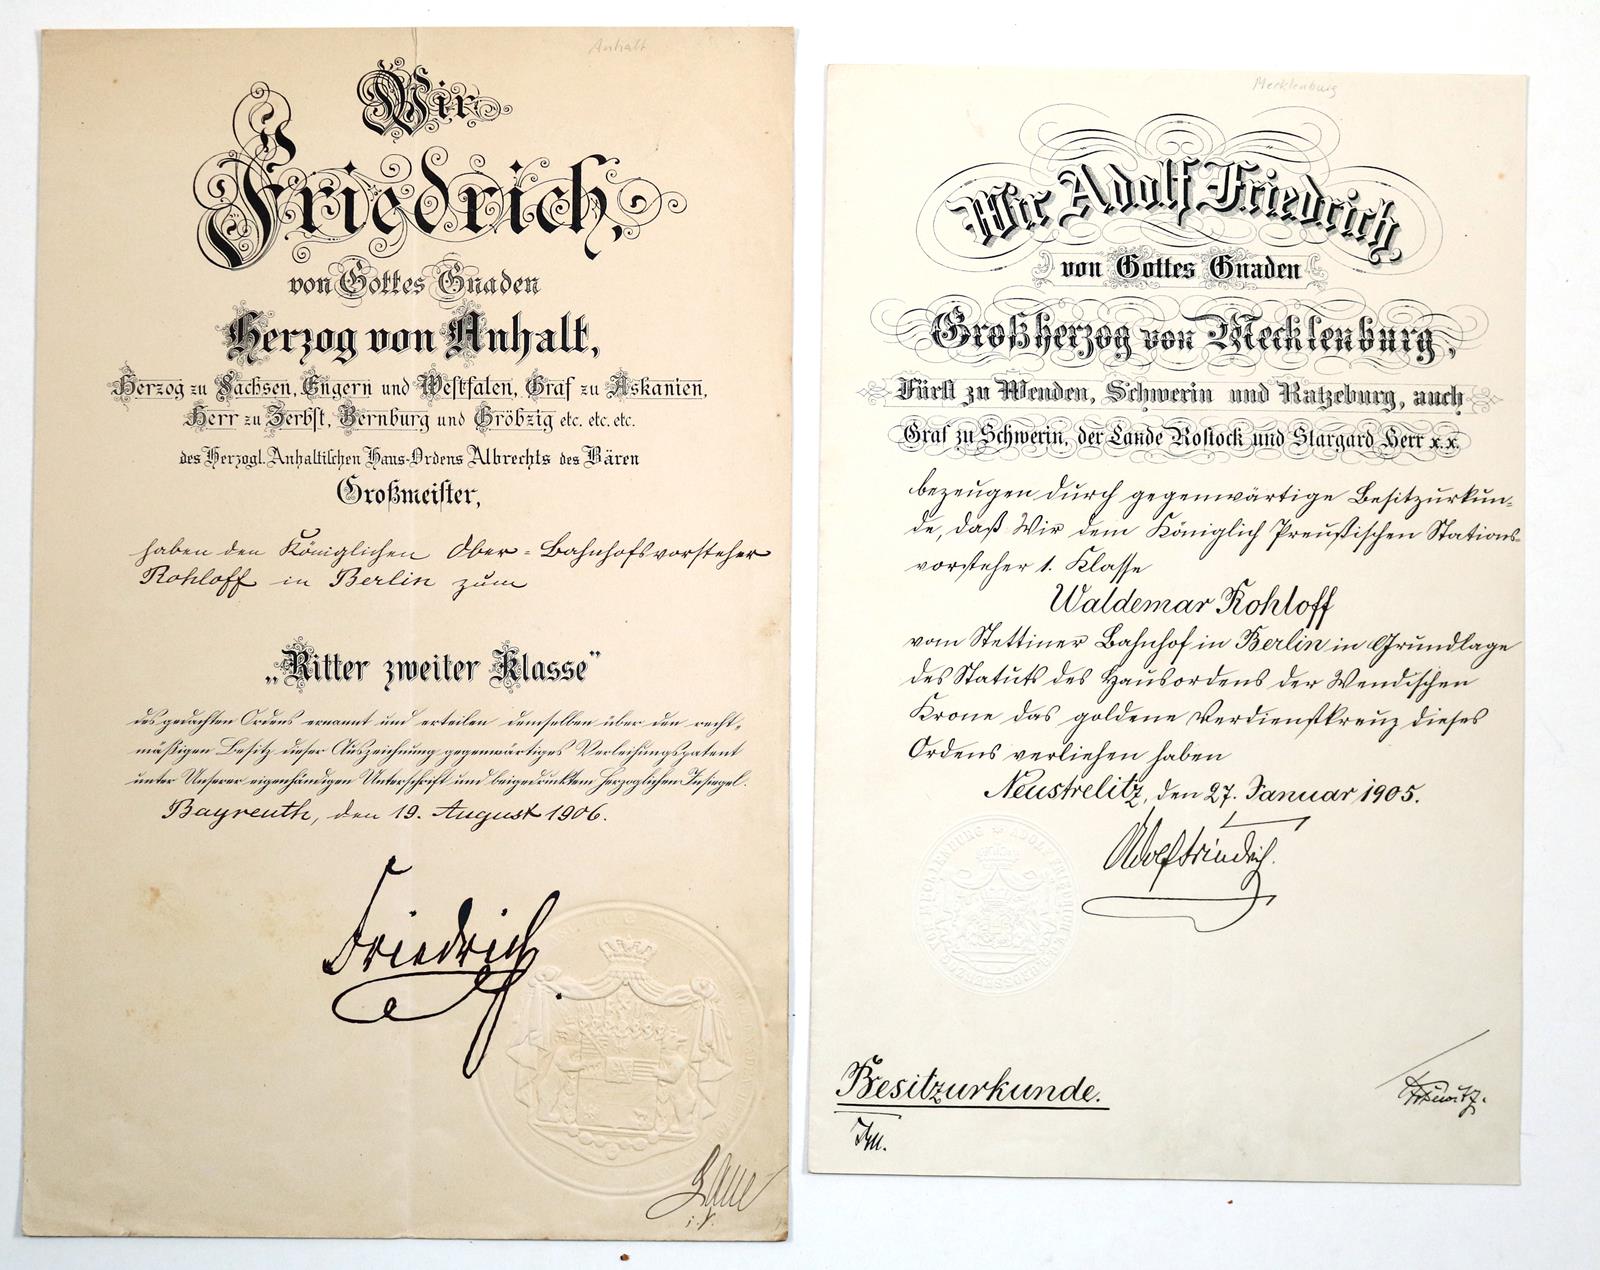 Anhalt
Wir
Friedrich,
von Gottes Gnaden
Herzog von Anhalt,
Herzog zu Sachsen, Engern und Westfalen, Graf zu Askanien,
Herr zu Zerbst, Bernburg und Gröbzig etc. etc. etc.
des Herzogl. Anhaltischen Haus-Ordens Albrechts des Bären
Großmeister,
haben den Königlichen Ober-Bahnhofsvorsteher
Rohloff in Berlin zum
„Ritter zweiter Klasse"
des gedachten Ordens ernannt und erteilen demselben über den recht-
mäßigen Besitz dieser Auszeichnung gegenwärtiges Verleihungspatent
unter Unserer eigenhändigen Unterschrift und beigedrucktem Herzoglichen Insiegel.
Bayreuth, den 19. August 1906.
Friedrich
i. V.
Mecklenburg
Wir Adolf Friedrich
von Gottes Gnaden
Großherzog von Mecklenburg,
Fürst zu Wenden, Schwerin und Ratzeburg, auch
Graf zu Schwerin, der Lande Rostock und Stargard Herr x.x.
bezeugen durch gegenwärtige Besitzurkun-
de, daß Wir dem Königlich Preußischen Stations-
vorsteher 1. Klasse
Waldemar Rohloff
vom Stettiner Bahnhof in Berlin in Grundlage
des Statuts des Hausordens der Wendischen
Krone das goldene Verdienstkreuz dieses
Ordens verliehen haben
Neustrelitz, den 27. Januar 1905.
Adolf Friedrich.
Besitzurkunde.